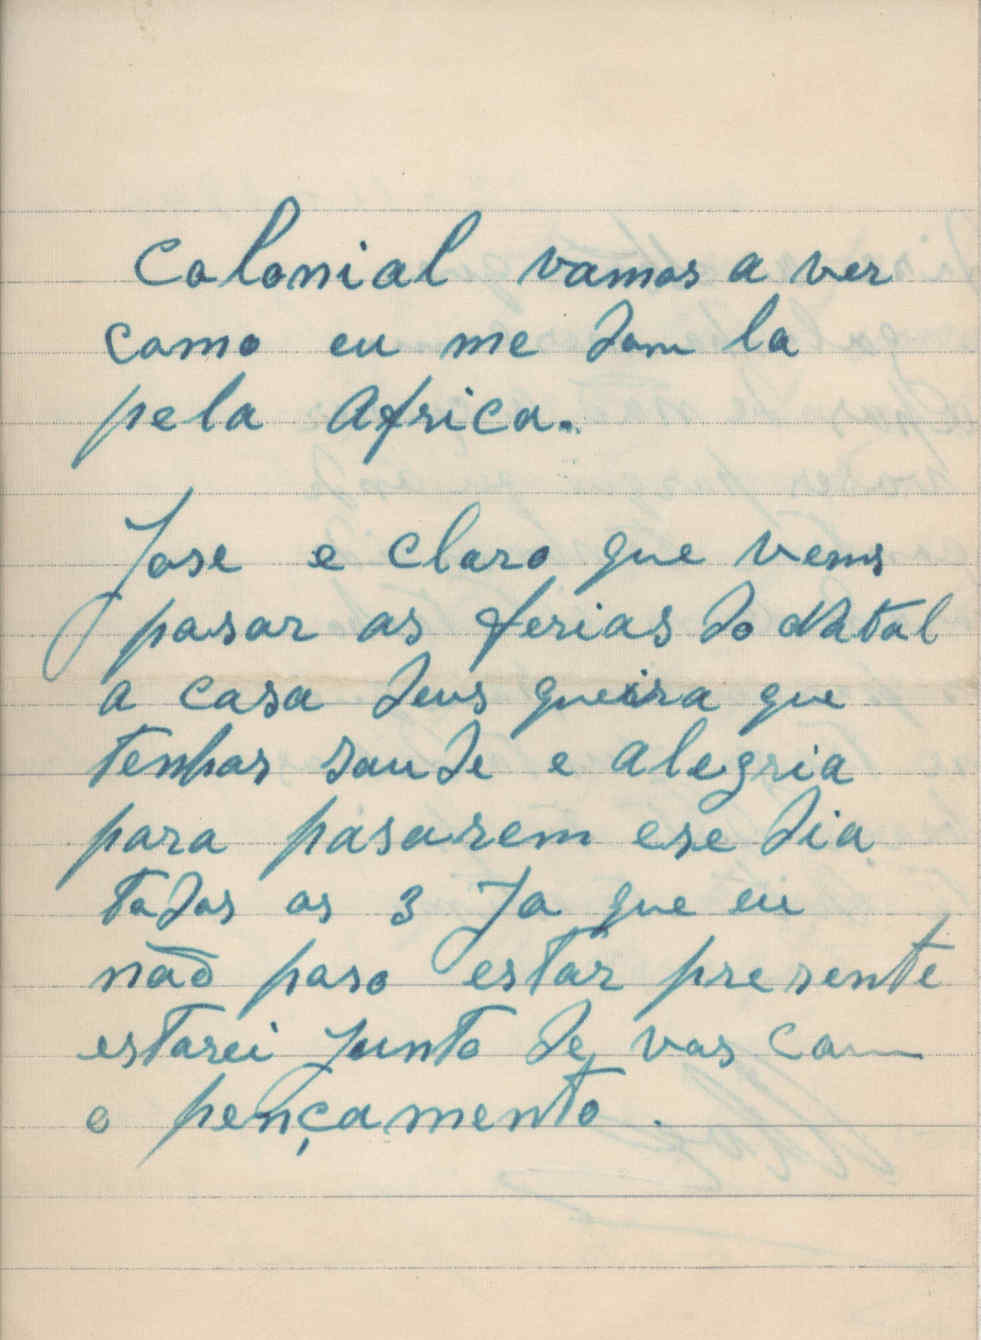 Colonial vamos a ver
como eu me dom la
pela Africa.
Jose e claro que vens
pasar as ferias do Natal
a casa Deus queira que
tenhas saude e alegria
para pasarem ese dia
todos os 3 Ja que eu
não poso estar presente
estarei junto de vos com
o pençamento.